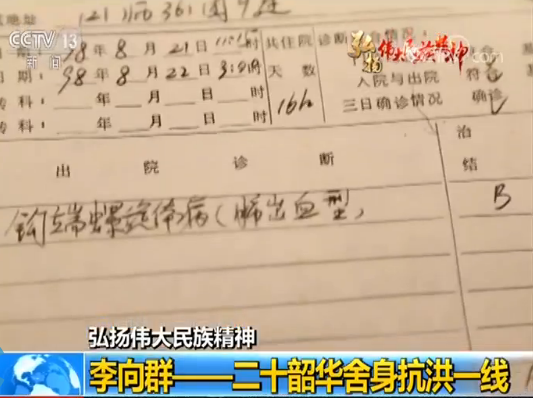 地址 121师361团9连
CCTV 13
新闻
弘扬伟大民族精神
98年8月21日 时
期: 98年8月22日3:00时
转科: 年 月 日 时
转科: 年 月 日 时
共住院天数
16h
诊断情况:
入院与出院 符合
三日确诊情况 确诊
出院诊断
治
结
钩端螺旋体病(肺出血型)
B
弘扬伟大民族精神
李向群——二十韶华舍身抗洪一线